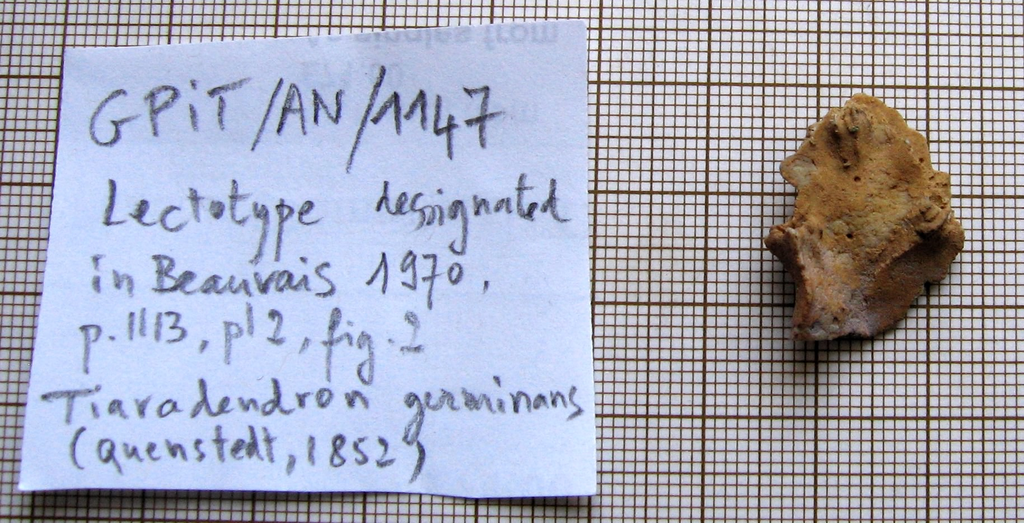 GPiT/AN/1147
Lectotype designated
in Beauvais 1970,
p. 1113, pl 2, fig. 2
Tiaradendron germinans
(Quenstedt, 1852)